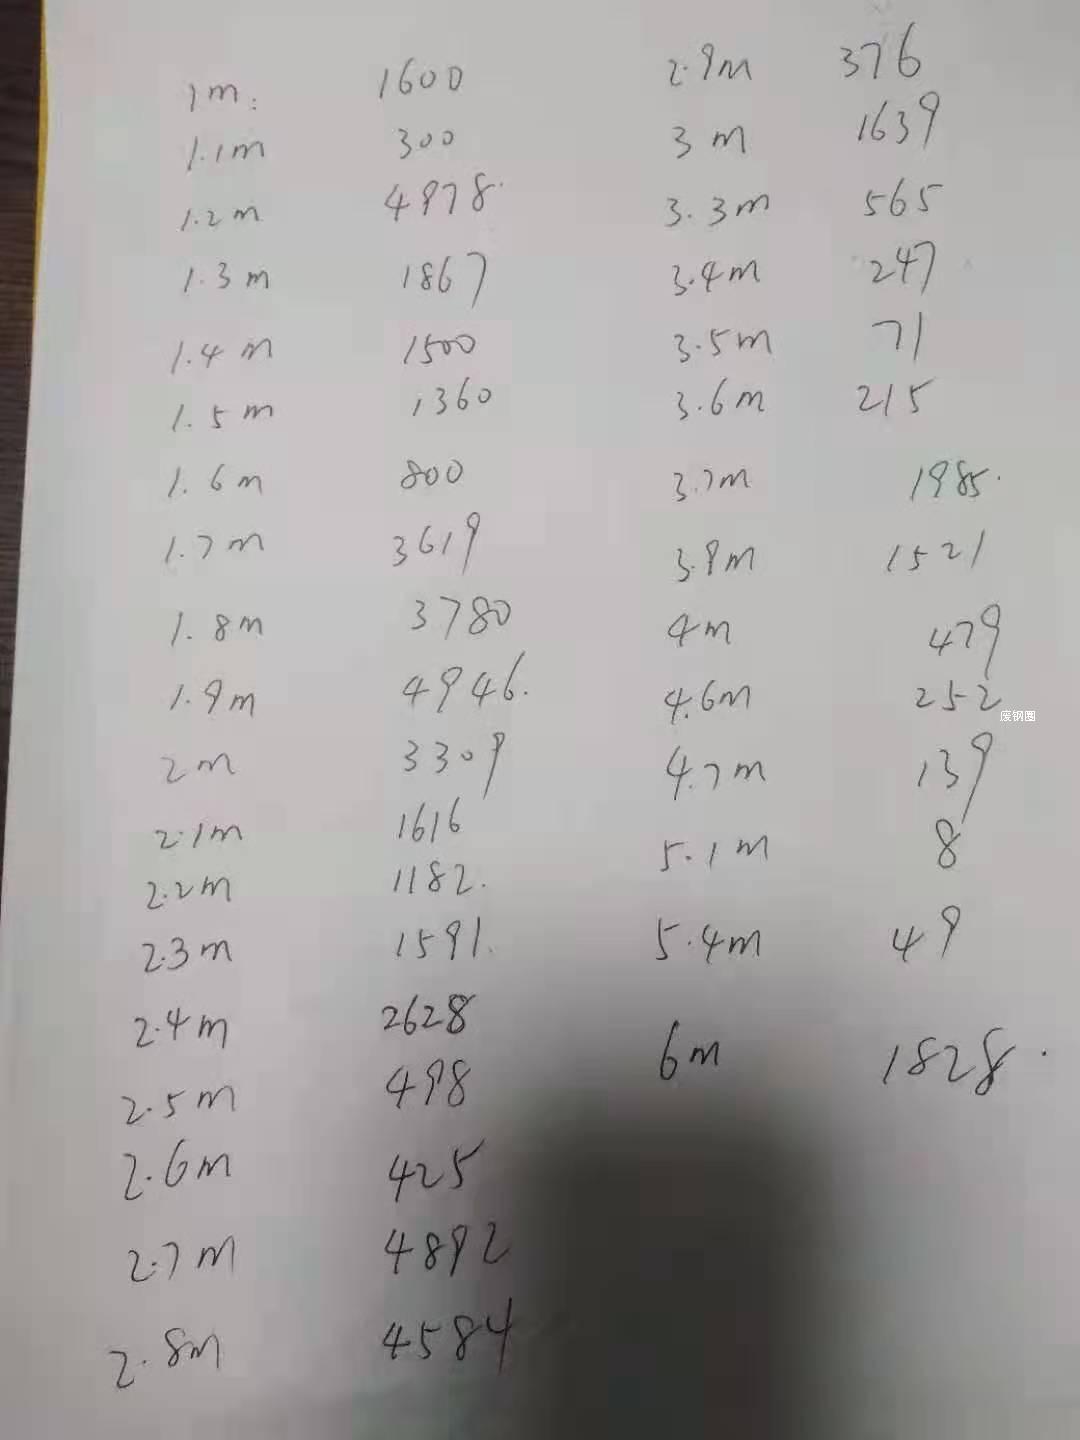 1m: 1600
1.1m 300
1.2m 4978
1.3m 1867
1.4m 1500
1.5m 1360
1.6m 800
1.7m 3619
1.8m 3780
1.9m 4946.
2m 3309
2.1m 1616
2.2m 1182.
2.3m 1591.
2.4m 2628
2.5m 498
2.6m 425
2.7m 4892
2.8m 4584
2.9m 376
3m 1639
3.3m 565
3.4m 247
3.5m 71
3.6m 215
3.7m 1985.
3.9m 1521
4m 479
4.6m 252
废钢圈
4.7m 139
5.1m 8
5.4m 49
6m 1828.